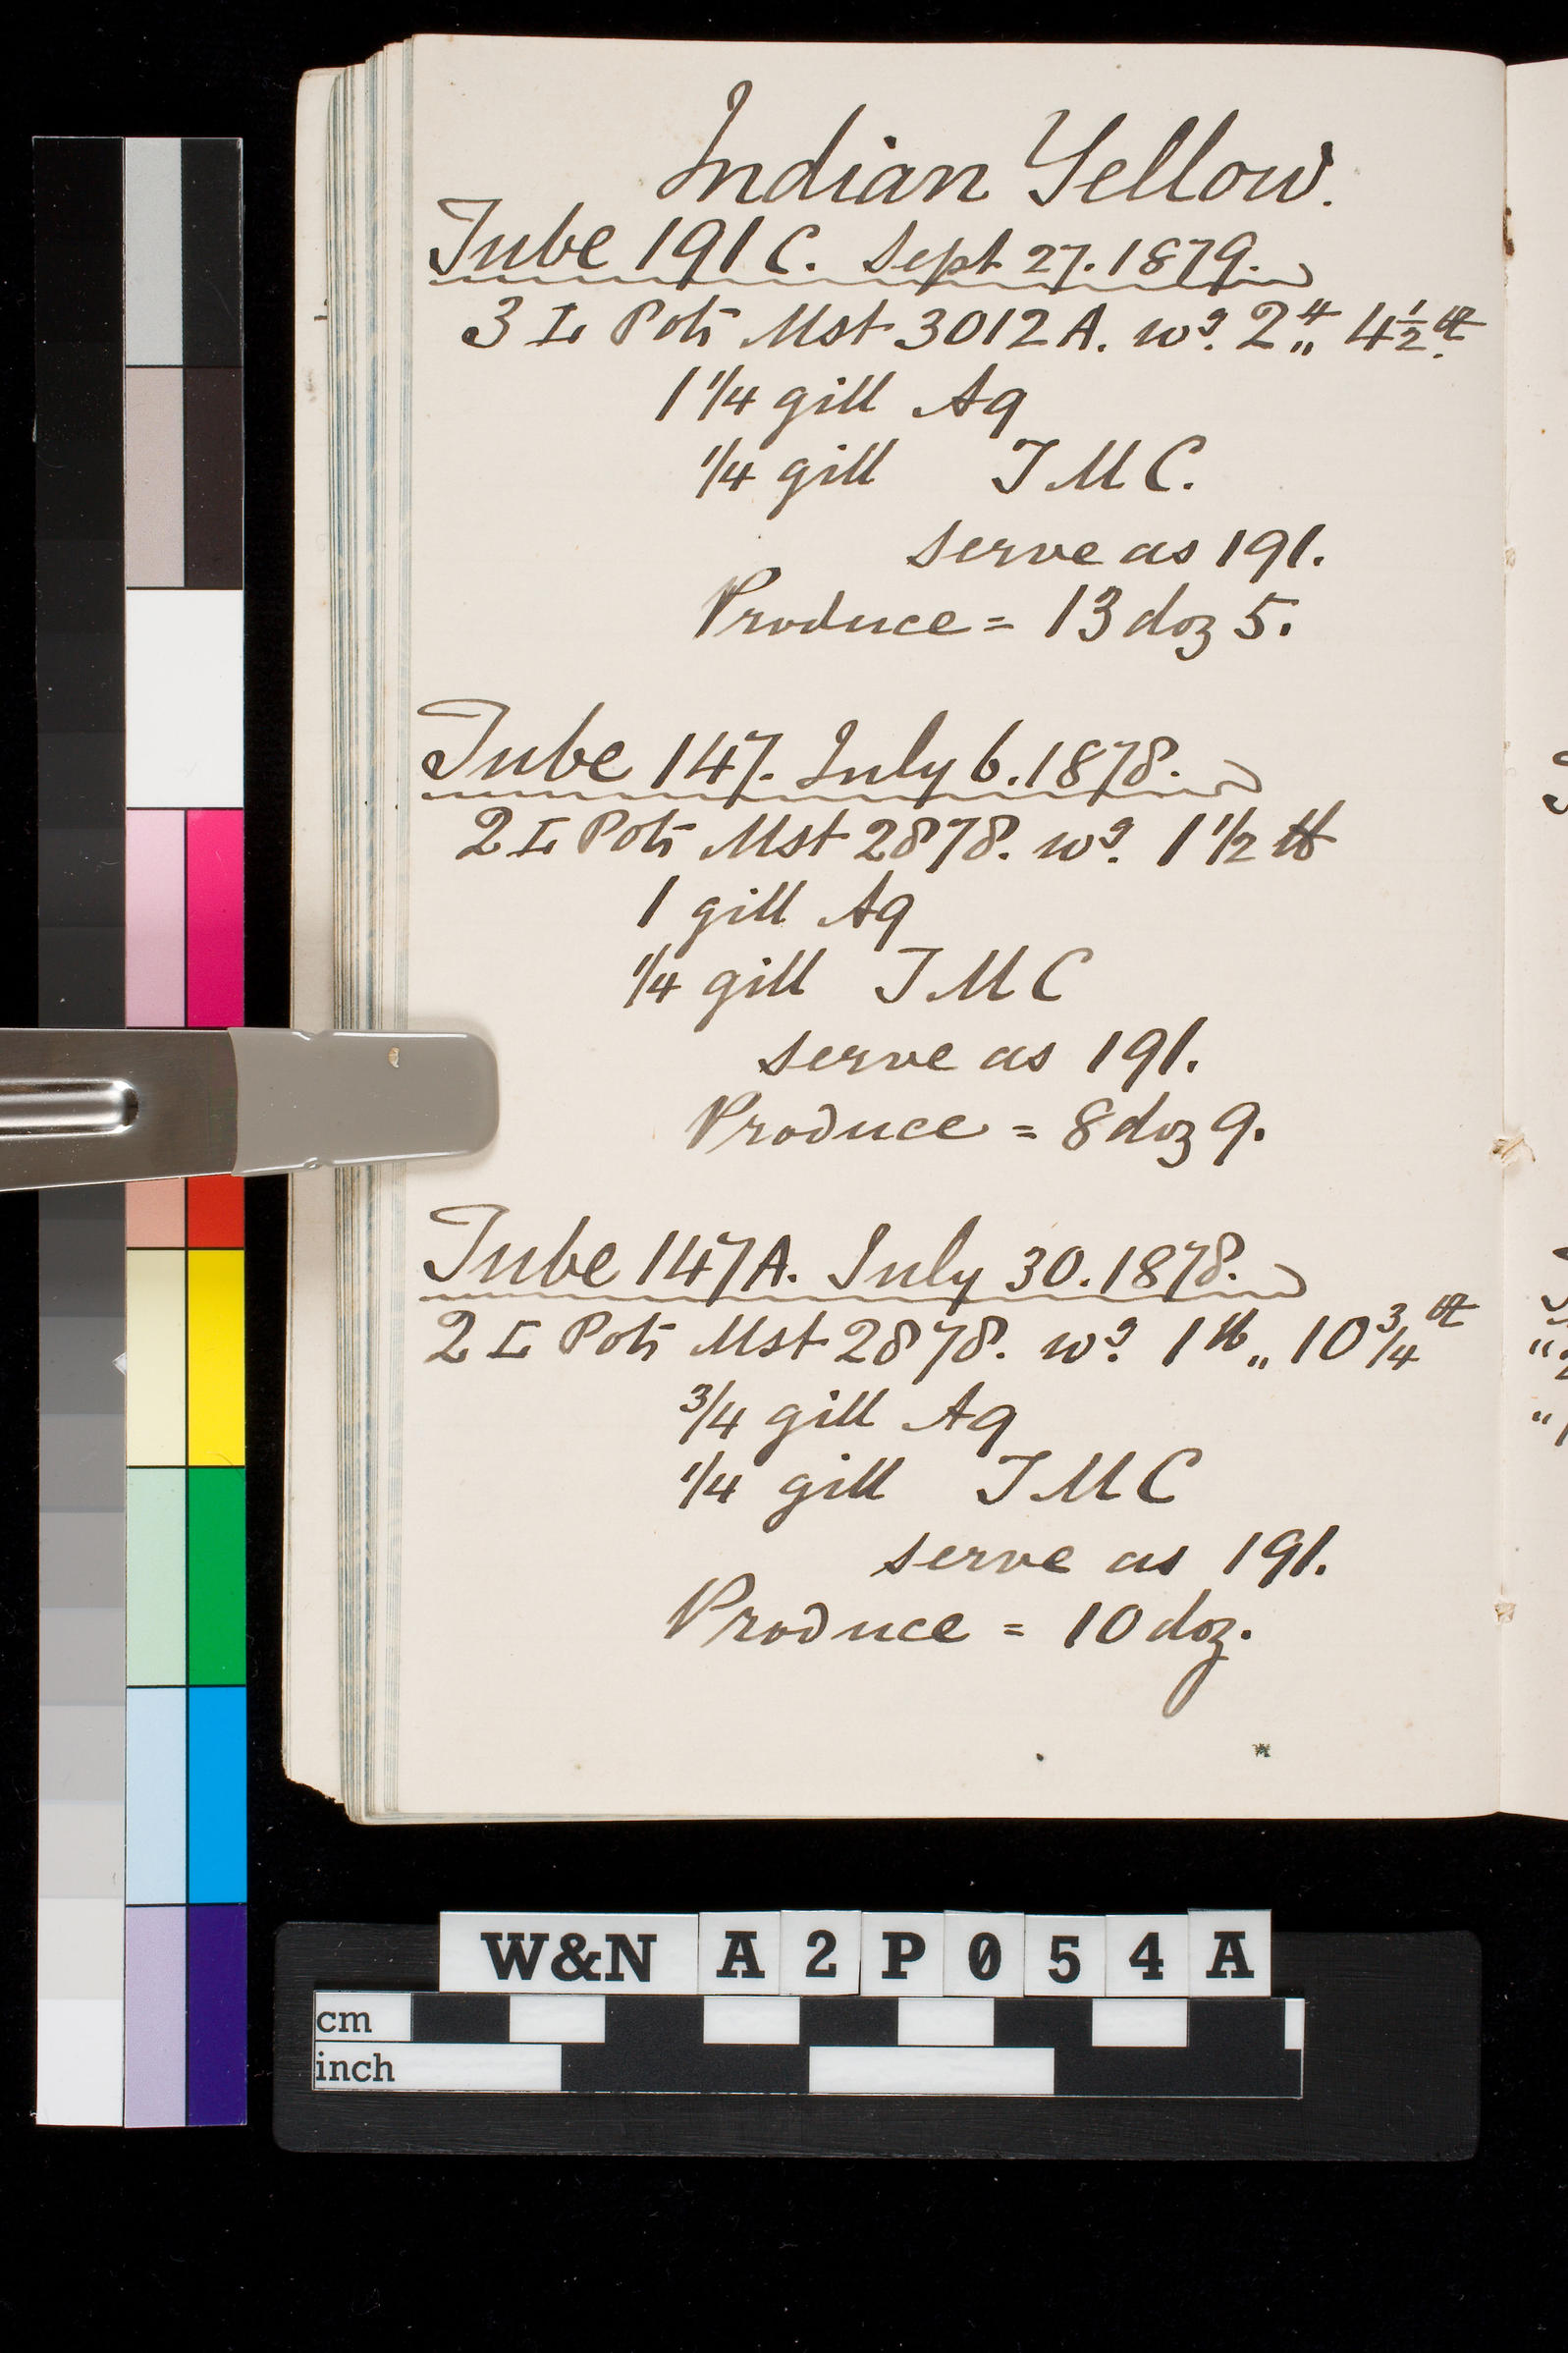 Indian Yellow.
Tube 191 C. Sept 27. 1879.
3 L Pots Mst 3012 A. wg. 2 lb „ 4½ oz
1 1/4 gill Aq
1/4 gill T M C.
serve as 191.
Produce = 13 doz 5.
Tube 147. July 6. 1878.
2 L Pots Mst 2878. wg. 1 1/2 lb
1 gill Aq
1/4 gill T M C
serve as 191.
Produce = 8 doz 9.
Tube 147A. July 30. 1878.
2 L Pots Mst 2878. wg. 1 lb „ 10 3/4 oz
3/4 gill Aq
1/4 gill T M C
serve as 191.
Produce = 10 doz.
W&N A2P054A
cm
inch